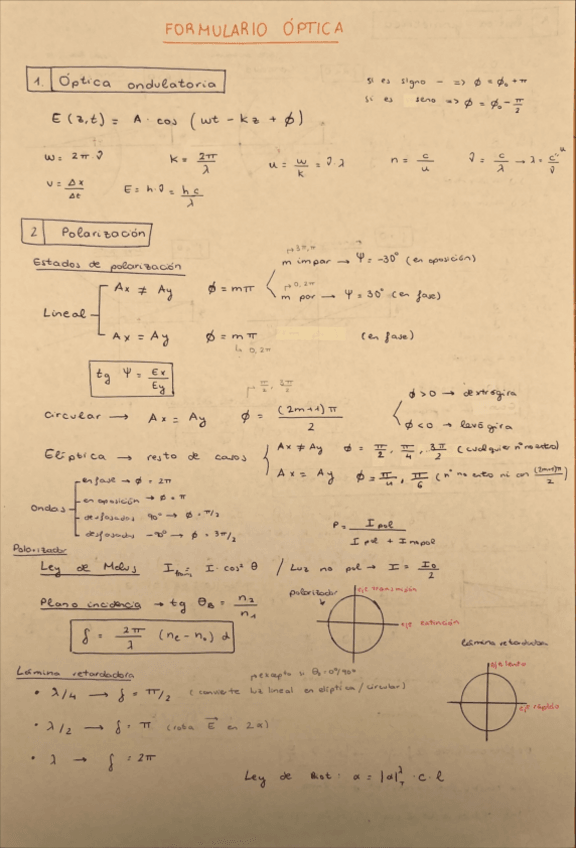 FORMULARIO ÓPTICA
1. Óptica ondulatoria
si es signo - => φ = φ₀ + π
si es seno => φ = φ₀ - π/2
E(z,t) = A · cos (wt - kz + φ)
w = 2π ν   k = 2π/λ   u = w/k = ν λ   n = c/u   ν = c/λ → λ = c/ν
v = Δx/Δt   E = h·ν = hc/λ
2 Polarización
Estados de polarización
Lineal
Ax ≠ Ay   φ = mπ
m impar → Ψ = -30° (en oposición)
0, 2π
m par → Ψ = 30° (en fase)
Ax = Ay   φ = mπ   (en fase)
↳ 0, 2π
tg Ψ = Ex/Ey
π/2, 3π/2
Circular → Ax = Ay   φ = (2m+1)π/2
φ>0 → dextrógira
φ<0 → levógira
Elíptica → resto de casos
Ax ≠ Ay   φ = π/2, π/4, 3π/2 (cualquier nº no entero)
Ax = Ay   φ = π/4, π/6 (nº no entero ni con (2m+1)π/2)
Ondas
en fase → φ = 2π
en oposición → φ = π
desfasados 90° → φ = π/2
desfasados -90° → φ = 3π/2
P = I pol / I pol + I no pol
Polarizador
Ley de Malus   I trans = I · cos² θ / Luz no pol → I = I₀/2
Plano incidencia → tg θB = n₂/n₁
polarizador
eje transmisión
eje extinción
δ = 2π/λ (ne - no) d
lámina retardadora
eje lento
eje rápido
Lámina retardadora
excepto si θ = 0°/90°
• λ/4 → δ = π/2 (convierte luz lineal en elíptica/circular)
• λ/2 → δ = π (rota E⃗ en 2α)
• λ → δ = 2π
Ley de Biot: α = |α|λT · c · l